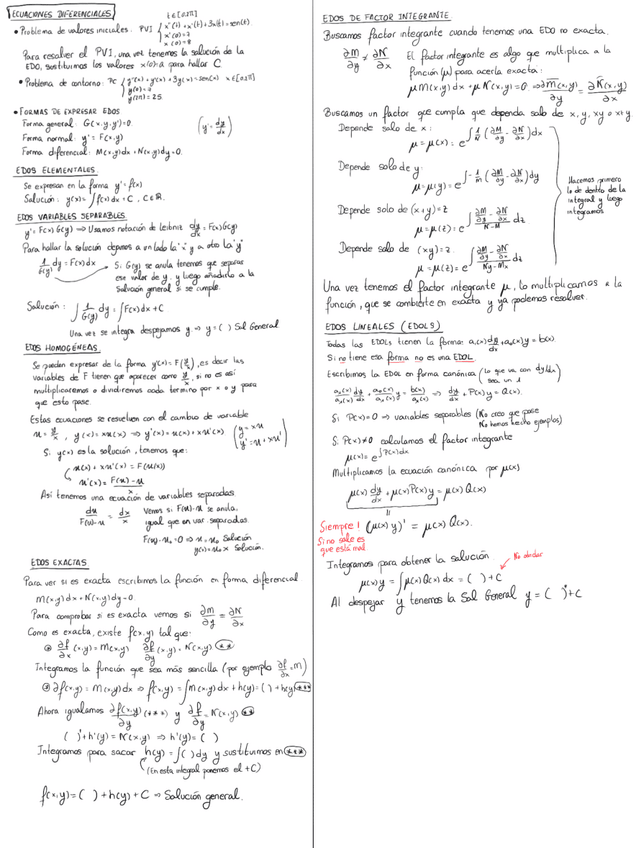 ECUACIONES DIFERENCIALES
t∈[0,2π]
• Problema de valores iniciales: PVI { x''(t)+x'(t)+3x(t)=sen(t)
x'(0)=7
x(0)=8
Para resolver el PVI, una vez tenemos la solución de la
EDO, sustituimos los valores x(0)=a para hallar C
• Problema de contorno: PC { y''(x)+y'(x)+3y(x)=sen(x) x∈[0,2π]
y(0)=7
y(π)=25
• FORMAS DE EXPRESAR EDOS
Forma general: G(x,y,y')=0.
Forma normal: y'=F(x,y)
(y'=dy/dx)
Forma diferencial: M(x,y)dx+N(x,y)dy=0.
EDOS ELEMENTALES
Se expresan en la forma y'=f(x)
Solución: y(x)=∫f(x)dx+C, C∈ℝ.
EDOS VARIABLES SEPARABLES
y'=F(x)G(y) ⇒ Usamos notación de Leibniz dy/dx=F(x)G(y)
Para hallar la solución dejamos a un lado la "x" y a otro la "y"
1/G(y) dy=F(x)dx
Si G(y) se anula tenemos que separar
ese valor de y, y luego añadirlo a la
Solución general si se cumple.
Solución: ∫1/G(y) dy=∫F(x)dx+C
Una vez se integra despejamos y → y=( ) Sol General
EDOS HOMOGÉNEAS
Se pueden expresar de la forma y'(x)=F(y/x), es decir las
variables de F tienen que aparecer como y/x, si no es así
multiplicaremos o dividiremos cada termino por x o y para
que esto pase.
Estas ecuaciones se resuelven con el cambio de variable
u=y/x, y(x)=xu(x) ⇒ y'(x)=u(x)+xu'(x) (y=xu
y'=u+xu')
Si y(x) es la solución, tenemos que:
u(x)+xu'(x)=F(u(x))
u'(x)=F(u)-u/x
Así tenemos una ecuación de variables separadas
du/F(u)-u=dx/x
Vemos si F(u)-u se anula,
igual que en var. separadas.
F(u₀)-u₀=0 ⇒ u=u₀ Solución
y(x)=u₀x Solución.
EDOS EXACTAS
Para ver si es exacta escribimos la función en forma diferencial
M(x,y)dx+N(x,y)dy=0.
Para comprobar si es exacta vemos si ∂M/∂y=∂N/∂x
Como es exacta, existe f(x,y) tal que:
∂f/∂x(x,y)=M(x,y) ∂f/∂y(x,y)=N(x,y) (**)
Integramos la función que sea más sencilla (por ejemplo ∂f/∂x=M)
∂f(x,y)=M(x,y)dx ⇒ f(x,y)=∫M(x,y)dx+h(y)=( )+h(y) (***)
Ahora igualamos ∂f(x,y)/∂y (***) y ∂f/∂y=N(x,y) (**)
( )'+h'(y)=N(x,y) ⇒ h'(y)=( )
Integramos para sacar h(y)=∫( )dy y sustituimos en (***)
(En esta integral ponemos el +C)
f(x,y)=( )+h(y)+C ⇒ Solución general.
EDOS DE FACTOR INTEGRANTE
Buscamos factor integrante cuando tenemos una EDO no exacta.
∂M/∂y≠∂N/∂x
El factor integrante es algo que multiplica a la
función (μ) para acerla exacta:
μM(x,y)dx+μN(x,y)=0 ⇒ ∂M(x,y)/∂y=∂N(x,y)/∂x
Buscamos un factor que cumpla que dependa solo de x, y, xy o x+y.
Depende solo de x:
μ=μ(x)=e^∫1/N(∂M/∂y-∂N/∂x)dx
Depende solo de y:
μ=μ(y)=e^∫-1/M(∂M/∂y-∂N/∂x)dy
Hacemos primero
lo de dentro de la
integral y luego
integramos
Depende solo de (x+y)=z
μ=μ(z)=e^∫(∂M/∂y-∂N/∂x)/(N-M) dz
Depende solo de (xy)=z.
μ=μ(z)=e^∫(∂M/∂y-∂N/∂x)/(Ny-Mx) dz
Una vez tenemos el factor integrante μ, lo multiplicamos a la
función, que se combierte en exacta y ya podemos resolver.
EDOS LINEALES (EDOLS)
Todas las EDOLS tienen la forma: a₁(x)dy/dx+a₀(x)y=b(x)
Si no tiene esa forma no es una EDOL
Escribimos la EDOL en forma canónica (Lo que va con dy/dx
sea un 1
a₁(x)/a₁(x) dy/dx+a₀(x)/a₁(x) y=b(x)/a₁(x) ⇒ dy/dx+P(x)y=Q(x).
Si P(x)=0 ⇒ variables separables (No creo que pase
No hemos hecho ejemplos)
Si P(x)≠0 calculamos el factor integrante
μ(x)=e^∫P(x)dx
Multiplicamos la ecuación canónica por μ(x)
μ(x)dy/dx+μ(x)P(x)y=μ(x)Q(x)
Siempre! (μ(x)y)'=μ(x)Q(x).
Si no sale es
que está mal
Integramos para obtener la solución
No olvidar
μ(x)y=∫μ(x)Q(x)dx=( )+C
Al despejar y tenemos la Sol General y=( )+C